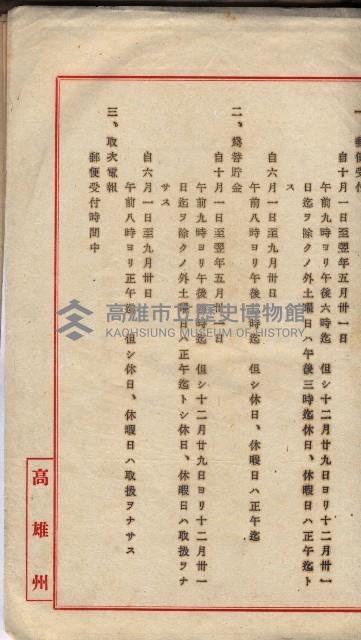 一、郵便受付
自十月一日至翌年五月卅一日
午前九時ヨリ午後六時迄 但シ十二月廿九日ヨリ十二月卅一
日迄ヲ除クノ外土曜日ハ午後三時迄休日、休暇日ハ正午迄ト
ス
自六月一日至九月卅日
午前八時ヨリ午後 時迄 但シ休日、休暇日ハ正午迄
二、為替貯金
自十月一日至翌年五月卅一日
午前九時ヨリ午後 時迄 但シ十二月廿九日ヨリ十二月卅一
日迄ヲ除クノ外土曜日ハ正午迄トシ休日、休暇日ハ取扱ヲナ
サス
自六月一日至九月卅日
午前八時ヨリ正午迄 但シ休日、休暇日ハ取扱ヲナサス
三、取次電報
郵便受付時間中
高雄州
高雄市立歷史博物館
KAOHSIUNG MUSEUM OF HISTORY